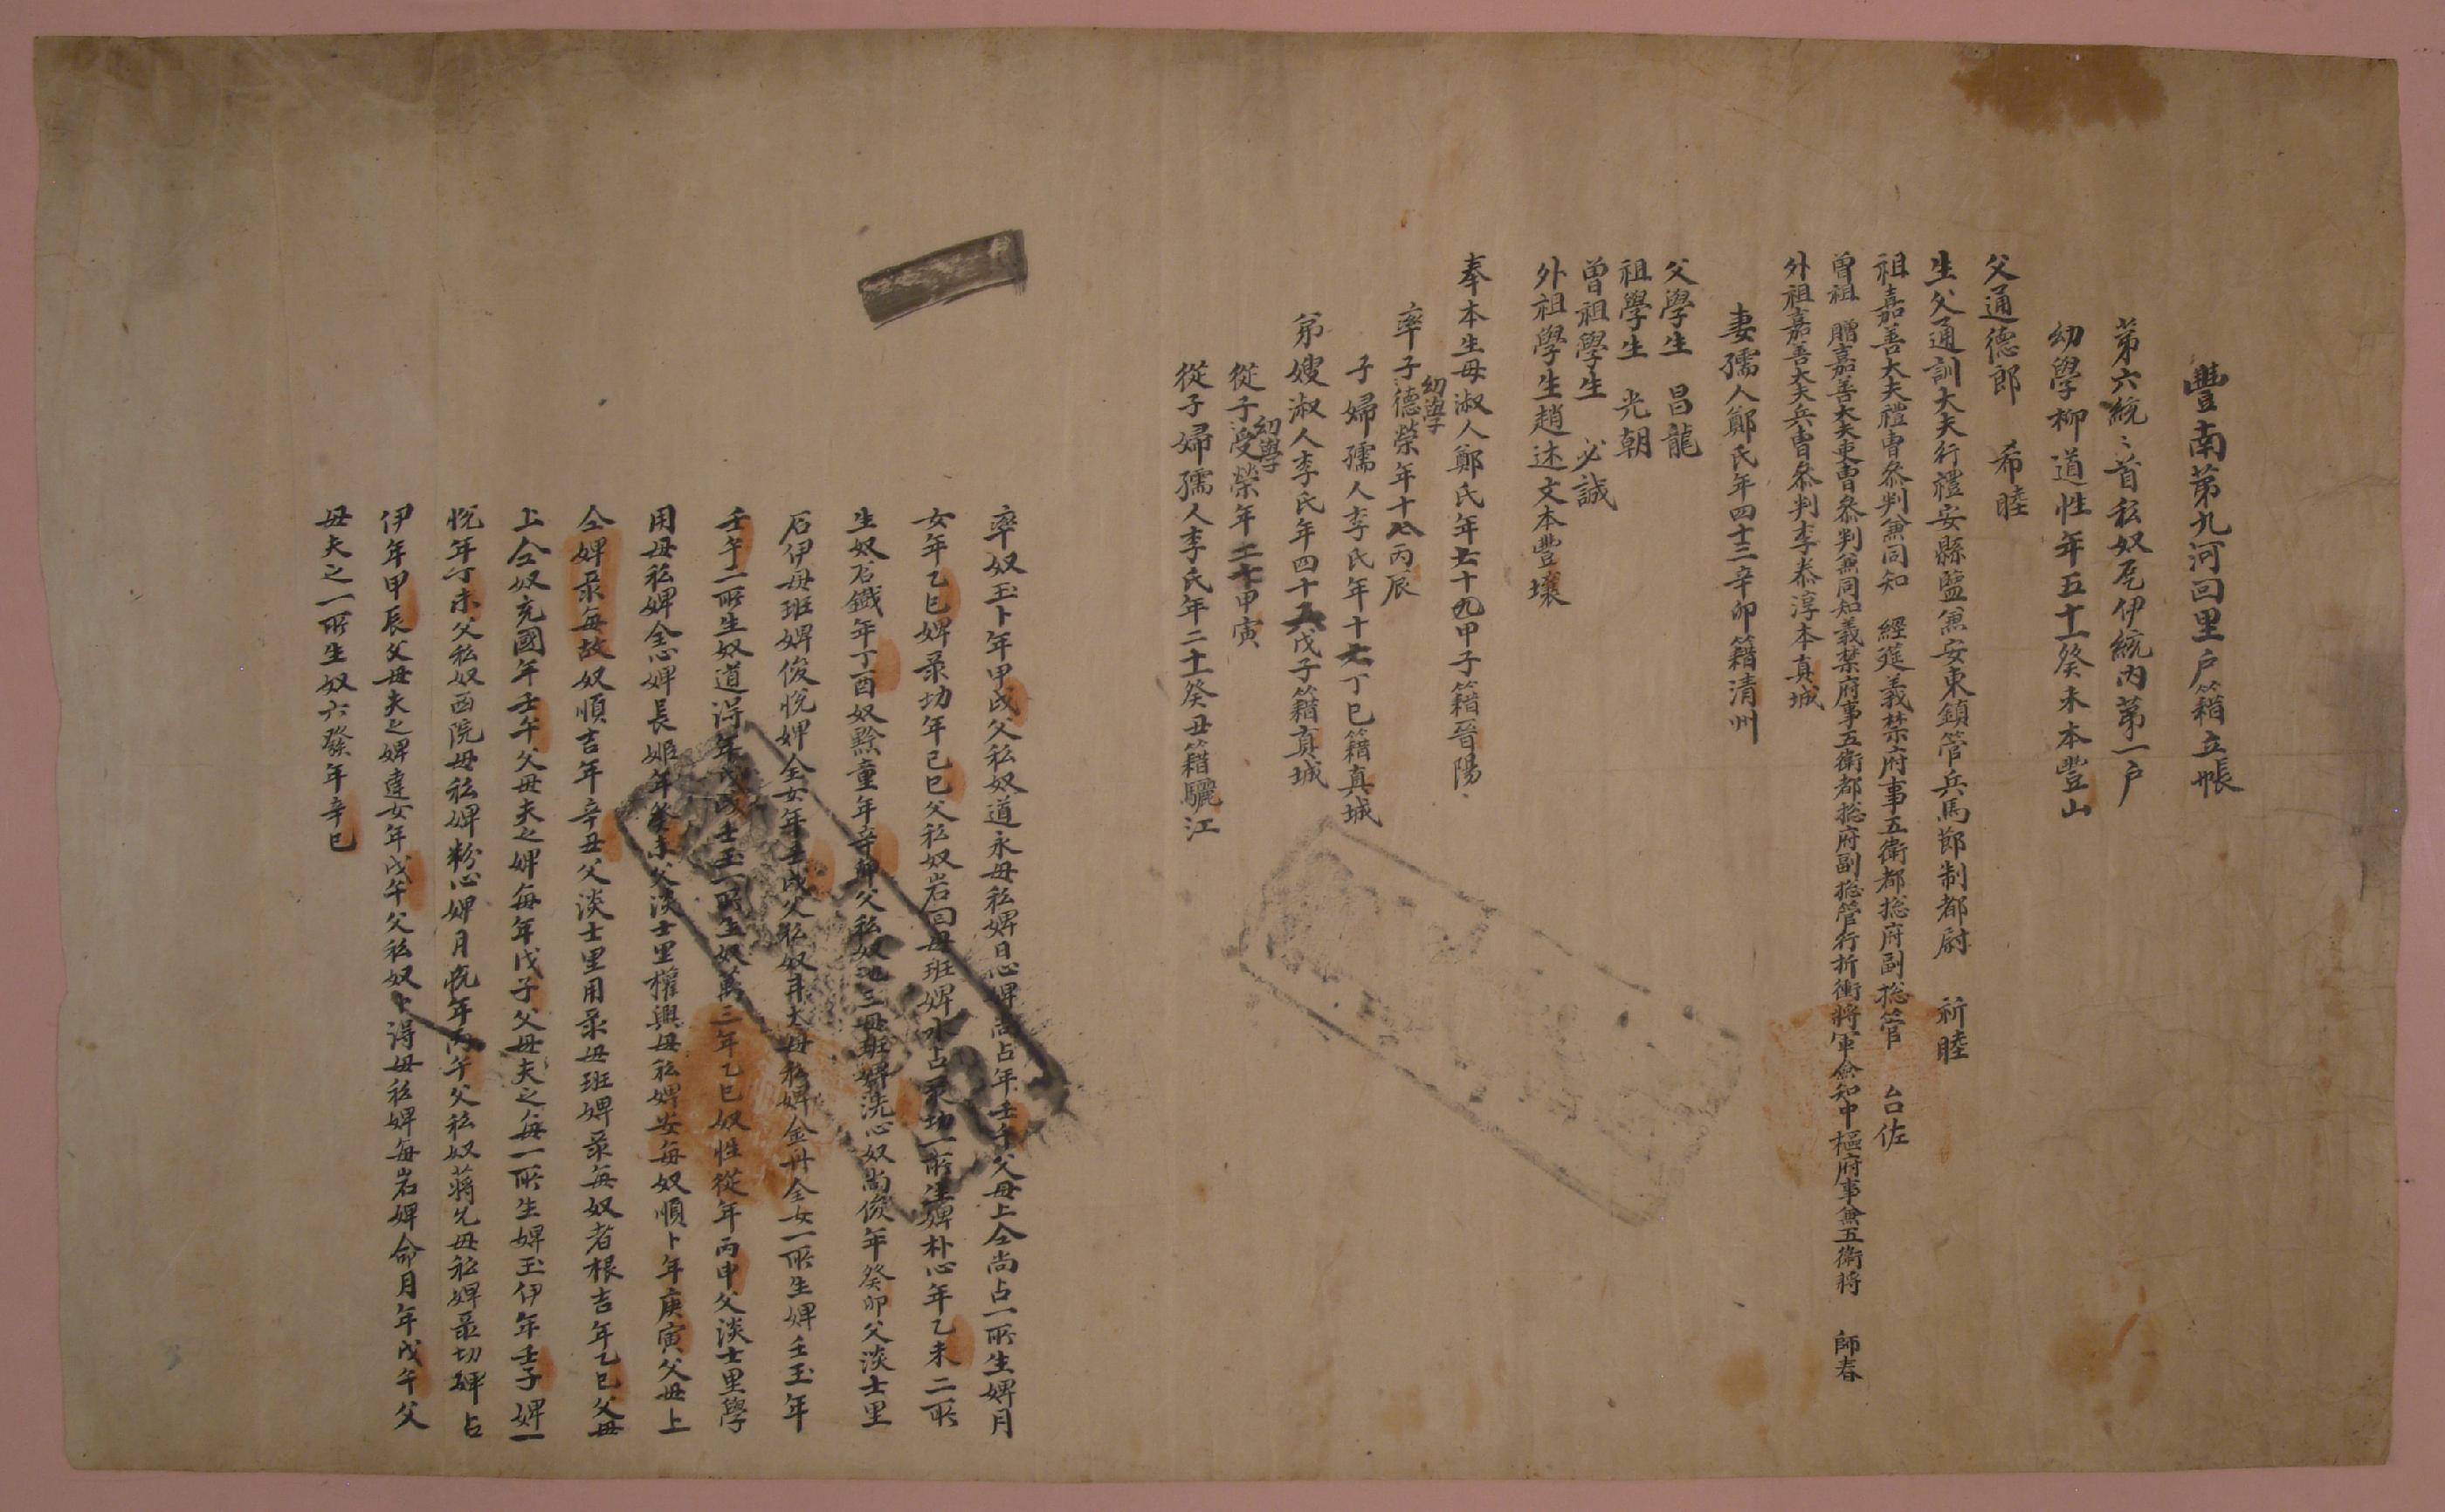 豐南第九河回里戶籍立帳
第六統〻首私奴尾伊統內第一戶
幼學柳道性年五十一癸未本豐山
父通德郎 希睦
生父通訓大夫行禮安縣監兼安東鎭管兵馬節制都尉 祈睦
祖嘉善大夫禮曹叅判兼同知 經筵義禁府事五衛都摠府副摠管 台佐
曾祖 贈嘉善大夫吏曹叅判兼同知義禁府事五衛都摠府副摠管行折衝將軍僉知中樞府事兼五衛將 師春
外祖嘉善大夫兵曹叅判李泰淳本真城
妻孺人鄭氏年四十三辛卯籍清州
父學生 昌龍
祖學生 光朝
曾祖學生 必誠
外祖學生趙述文本豐壤
奉本生母淑人鄭氏年七十九甲子籍晉陽
率子幼學德榮年十八丙辰
子婦孺人李氏年十七丁巳籍真城
弟嫂淑人李氏年四十五戊子籍真城
從子幼學受榮年二十甲寅
從子婦孺人李氏年二十一癸丑籍驪江
率奴玉卜年甲戌父私奴道永母私婢日心婢尚占年壬午父母上仝尚占一所生婢月
女年乙巳婢彔切年己巳父私奴岩回母班婢水占彔切一所生婢朴心年乙未二所
生奴石鐵年丁酉奴黔童年辛卯父私奴 三母班婢洗心奴尚俊年癸卯父淡士里
石伊母班婢俊悅婢全女年壬戌父私奴年大母私婢金丹全女一所生婢壬玉年
壬午二所生奴道淂年戊戌士玉一所生奴萬三年乙巳奴性從年丙申父淡士里學
用母私婢全心婢長姬年癸未父淡士里權興母私婢安每奴順卜年庚寅父母上
仝婢彔每故奴順吉年辛丑父淡士里用彔母班婢彔每奴者根吉年乙巳父母
上仝奴充國年壬午父母夫之婢每年戊子父母夫之每一所生婢玉伊年壬子婢一
悅年丁未父私奴西院母私婢粉心婢月悅年丙午父私奴蔣先母私婢彔切婢占
伊年甲辰父母夫之婢達女年戊午父私奴卜淂母私婢每岩婢命月年戊午父
母夫之一所生奴六發年辛巳